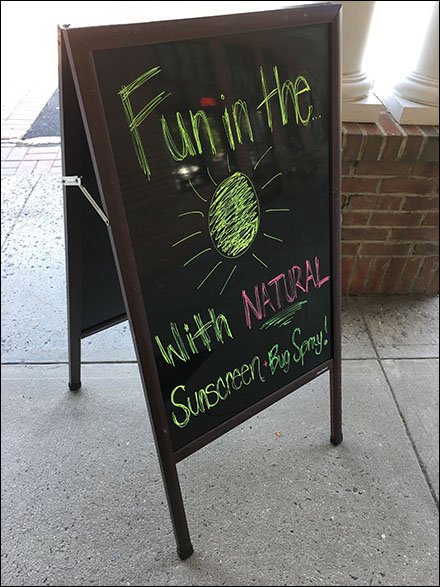 Fun in the...
With NATURAL
Sunscreen + Bug Spray!